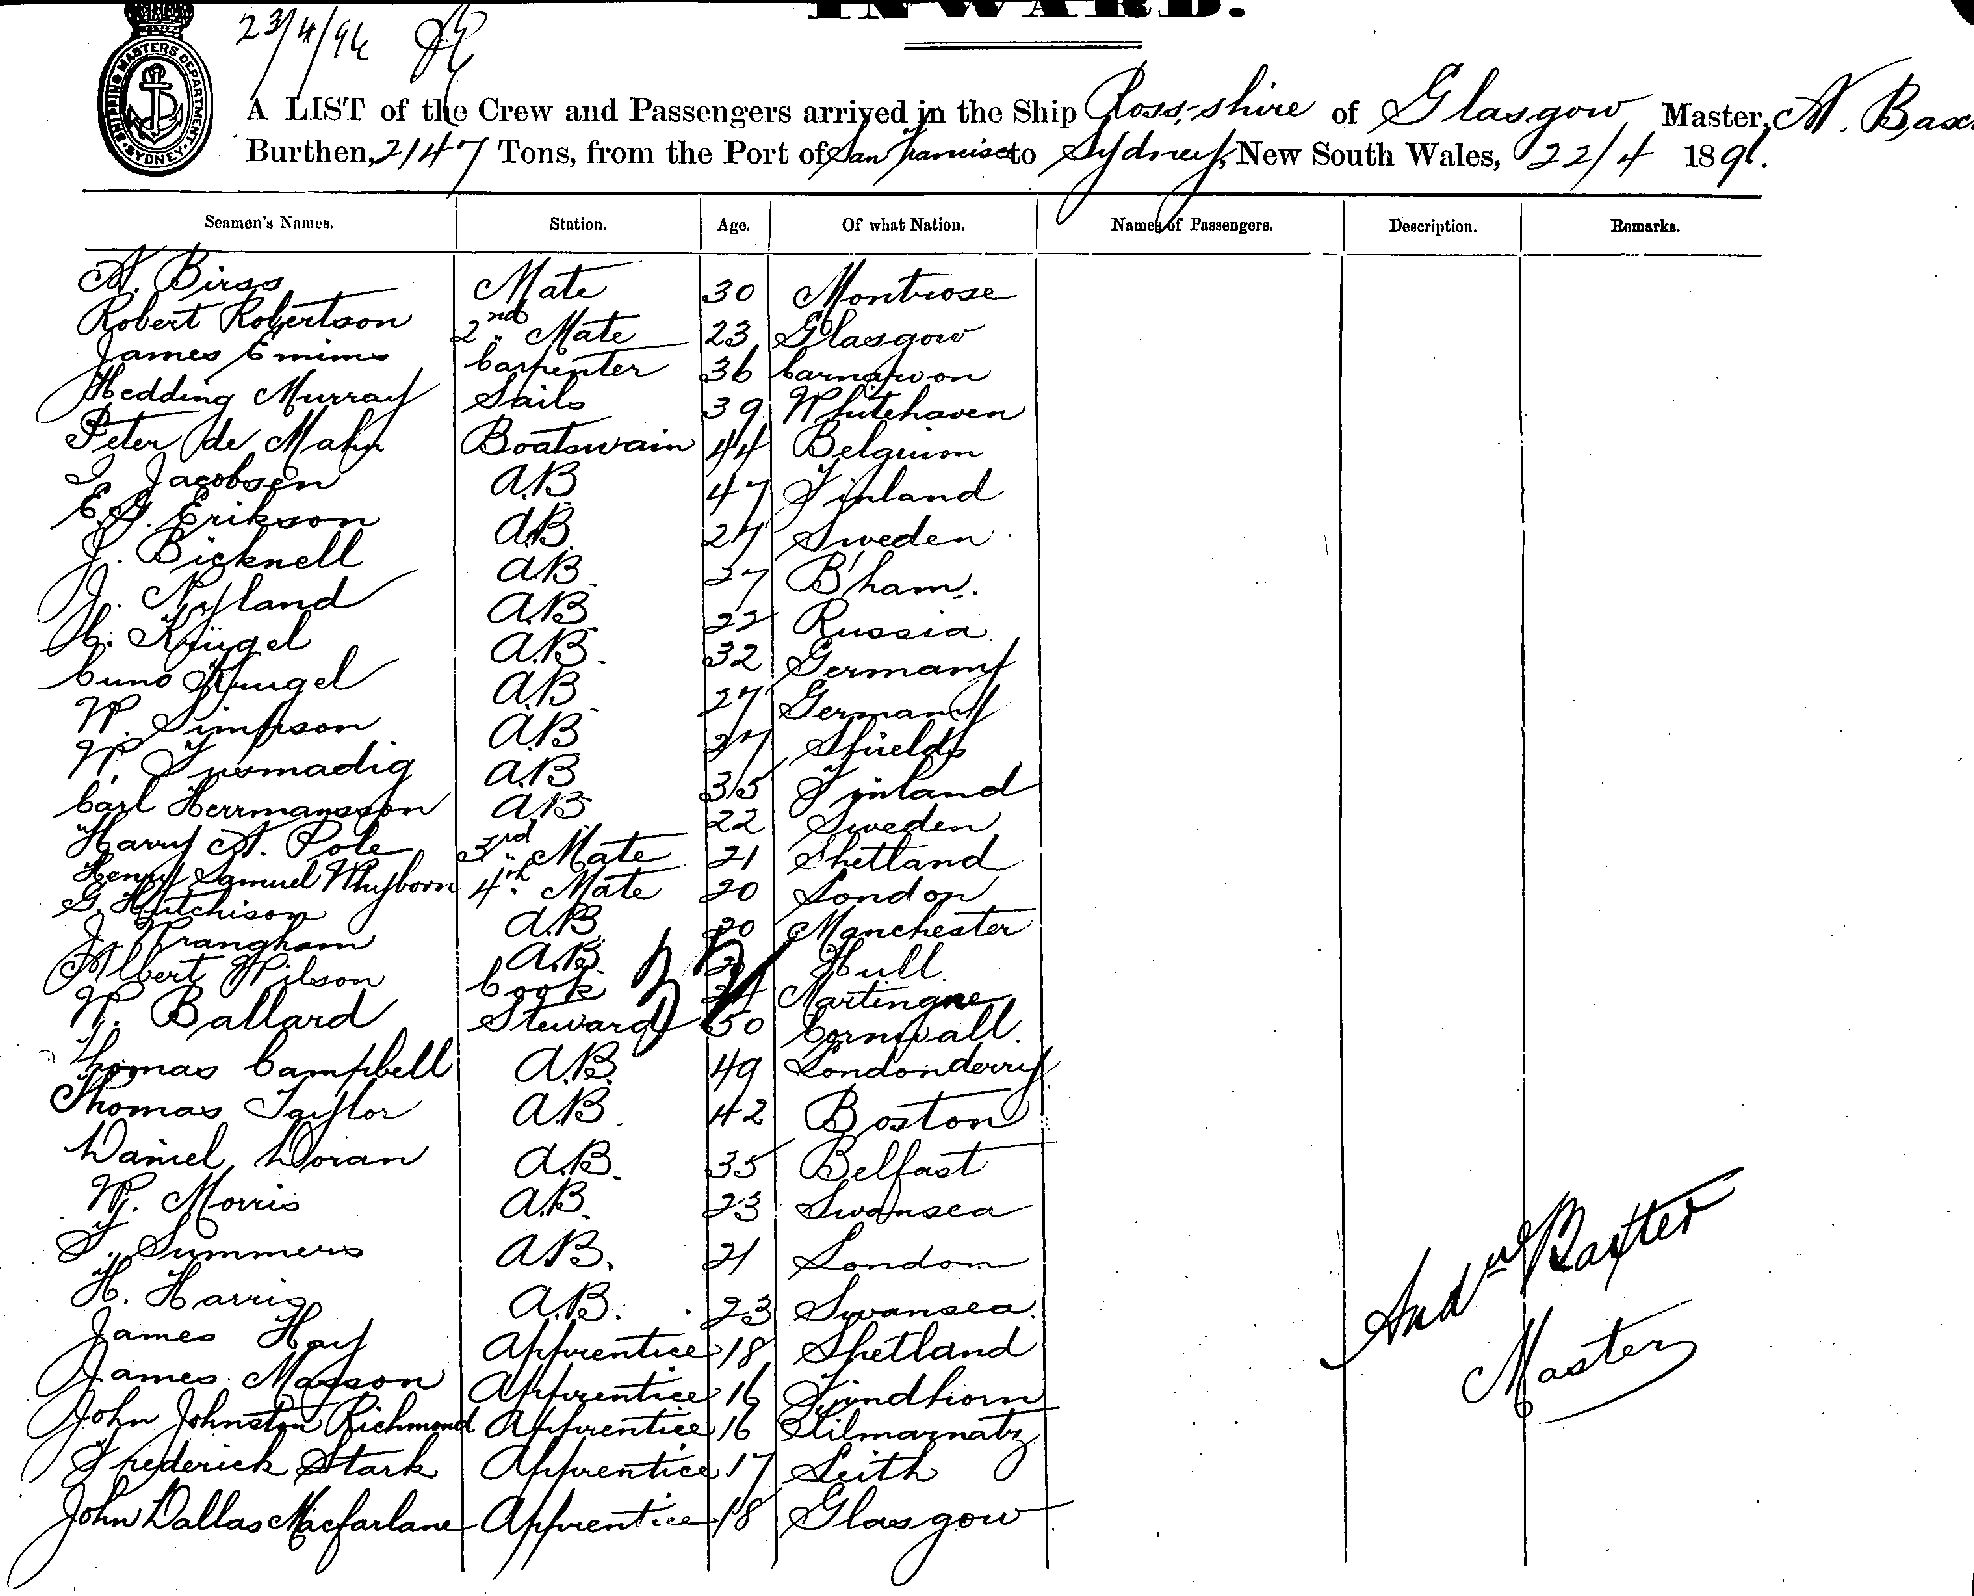 INWARD.
23/4/96
SHIPPING MASTERS DEPARTMENT SYDNEY
A LIST of the Crew and Passengers arrived in the Ship Ross-shire of Glasgow Master, A. Bax
Burthen, 2147 Tons, from the Port of San Francisco to Sydney, New South Wales, 22/4 1896.
Seamen's Names. Station. Age. Of what Nation. Names of Passengers. Description. Remarks.
A. Birss Mate 30 Montrose
Robert Robertson 2nd Mate 23 Glasgow
James Carpenter 36 Carnarvon
Hedding Murray Sails 39 Whitehaven
Peter de Mahn Boatswain 44 Belguim
Jacobsen A.B 47 Finland
E. G. Erikson A.B. 27 Sweden
J. Bicknell A.B. 27 B'ham.
J. Nyland A.B. 22 Russia
H. Krügel A.B. 32 Germany
Cuno Krugel A.B. 27 Germany
W. Simpson A.B. 27 Shields
W. A.B. 35 Finland
Carl Herrmansson A.B 22 Sweden
Harry A. Pole 3rd Mate 21 Shetland
Henry Samuel Whyborn 4th Mate 20 London
G. Hutchison A.B. 20 Manchester
J. Wrangham A.B. Hull.
Albert Wilson Cook Martinque
W. Ballard Steward 50 Cornwall.
Thomas Campbell A.B. 49 Londonderry
Thomas Taylor A.B. 42 Boston
Daniel Doran A.B. 35 Belfast
W. Morris A.B. 23 Swansea
F. Summers A.B. 21 London
H. Harris A.B. 23 Swansea.
James Hay Apprentice 18 Shetland
James Masson Apprentice 16 Findhorn
John Johnston Richmond Apprentice 16 Kilmarnatz
Frederick Stark Apprentice 17 Leith
John Dallas Macfarlane Apprentice 18 Glasgow
Andw Baxter
Master